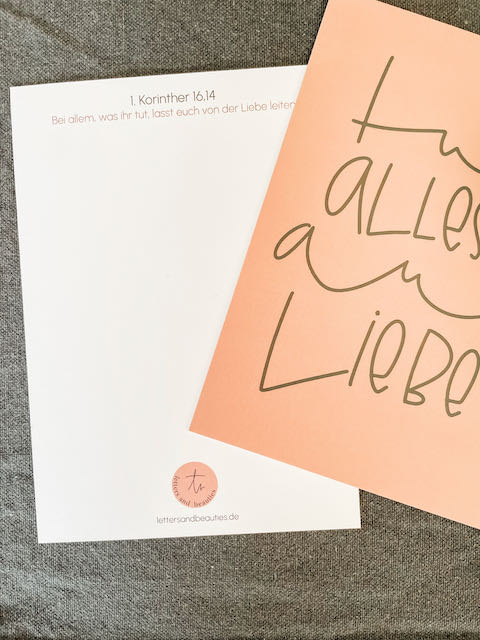 1. Korinther 16,14
Bei allem, was ihr tut, lasst euch von der Liebe leiten
tu
ALLES
aus
LIEBE
letters and beauties
lettersandbeauties.de